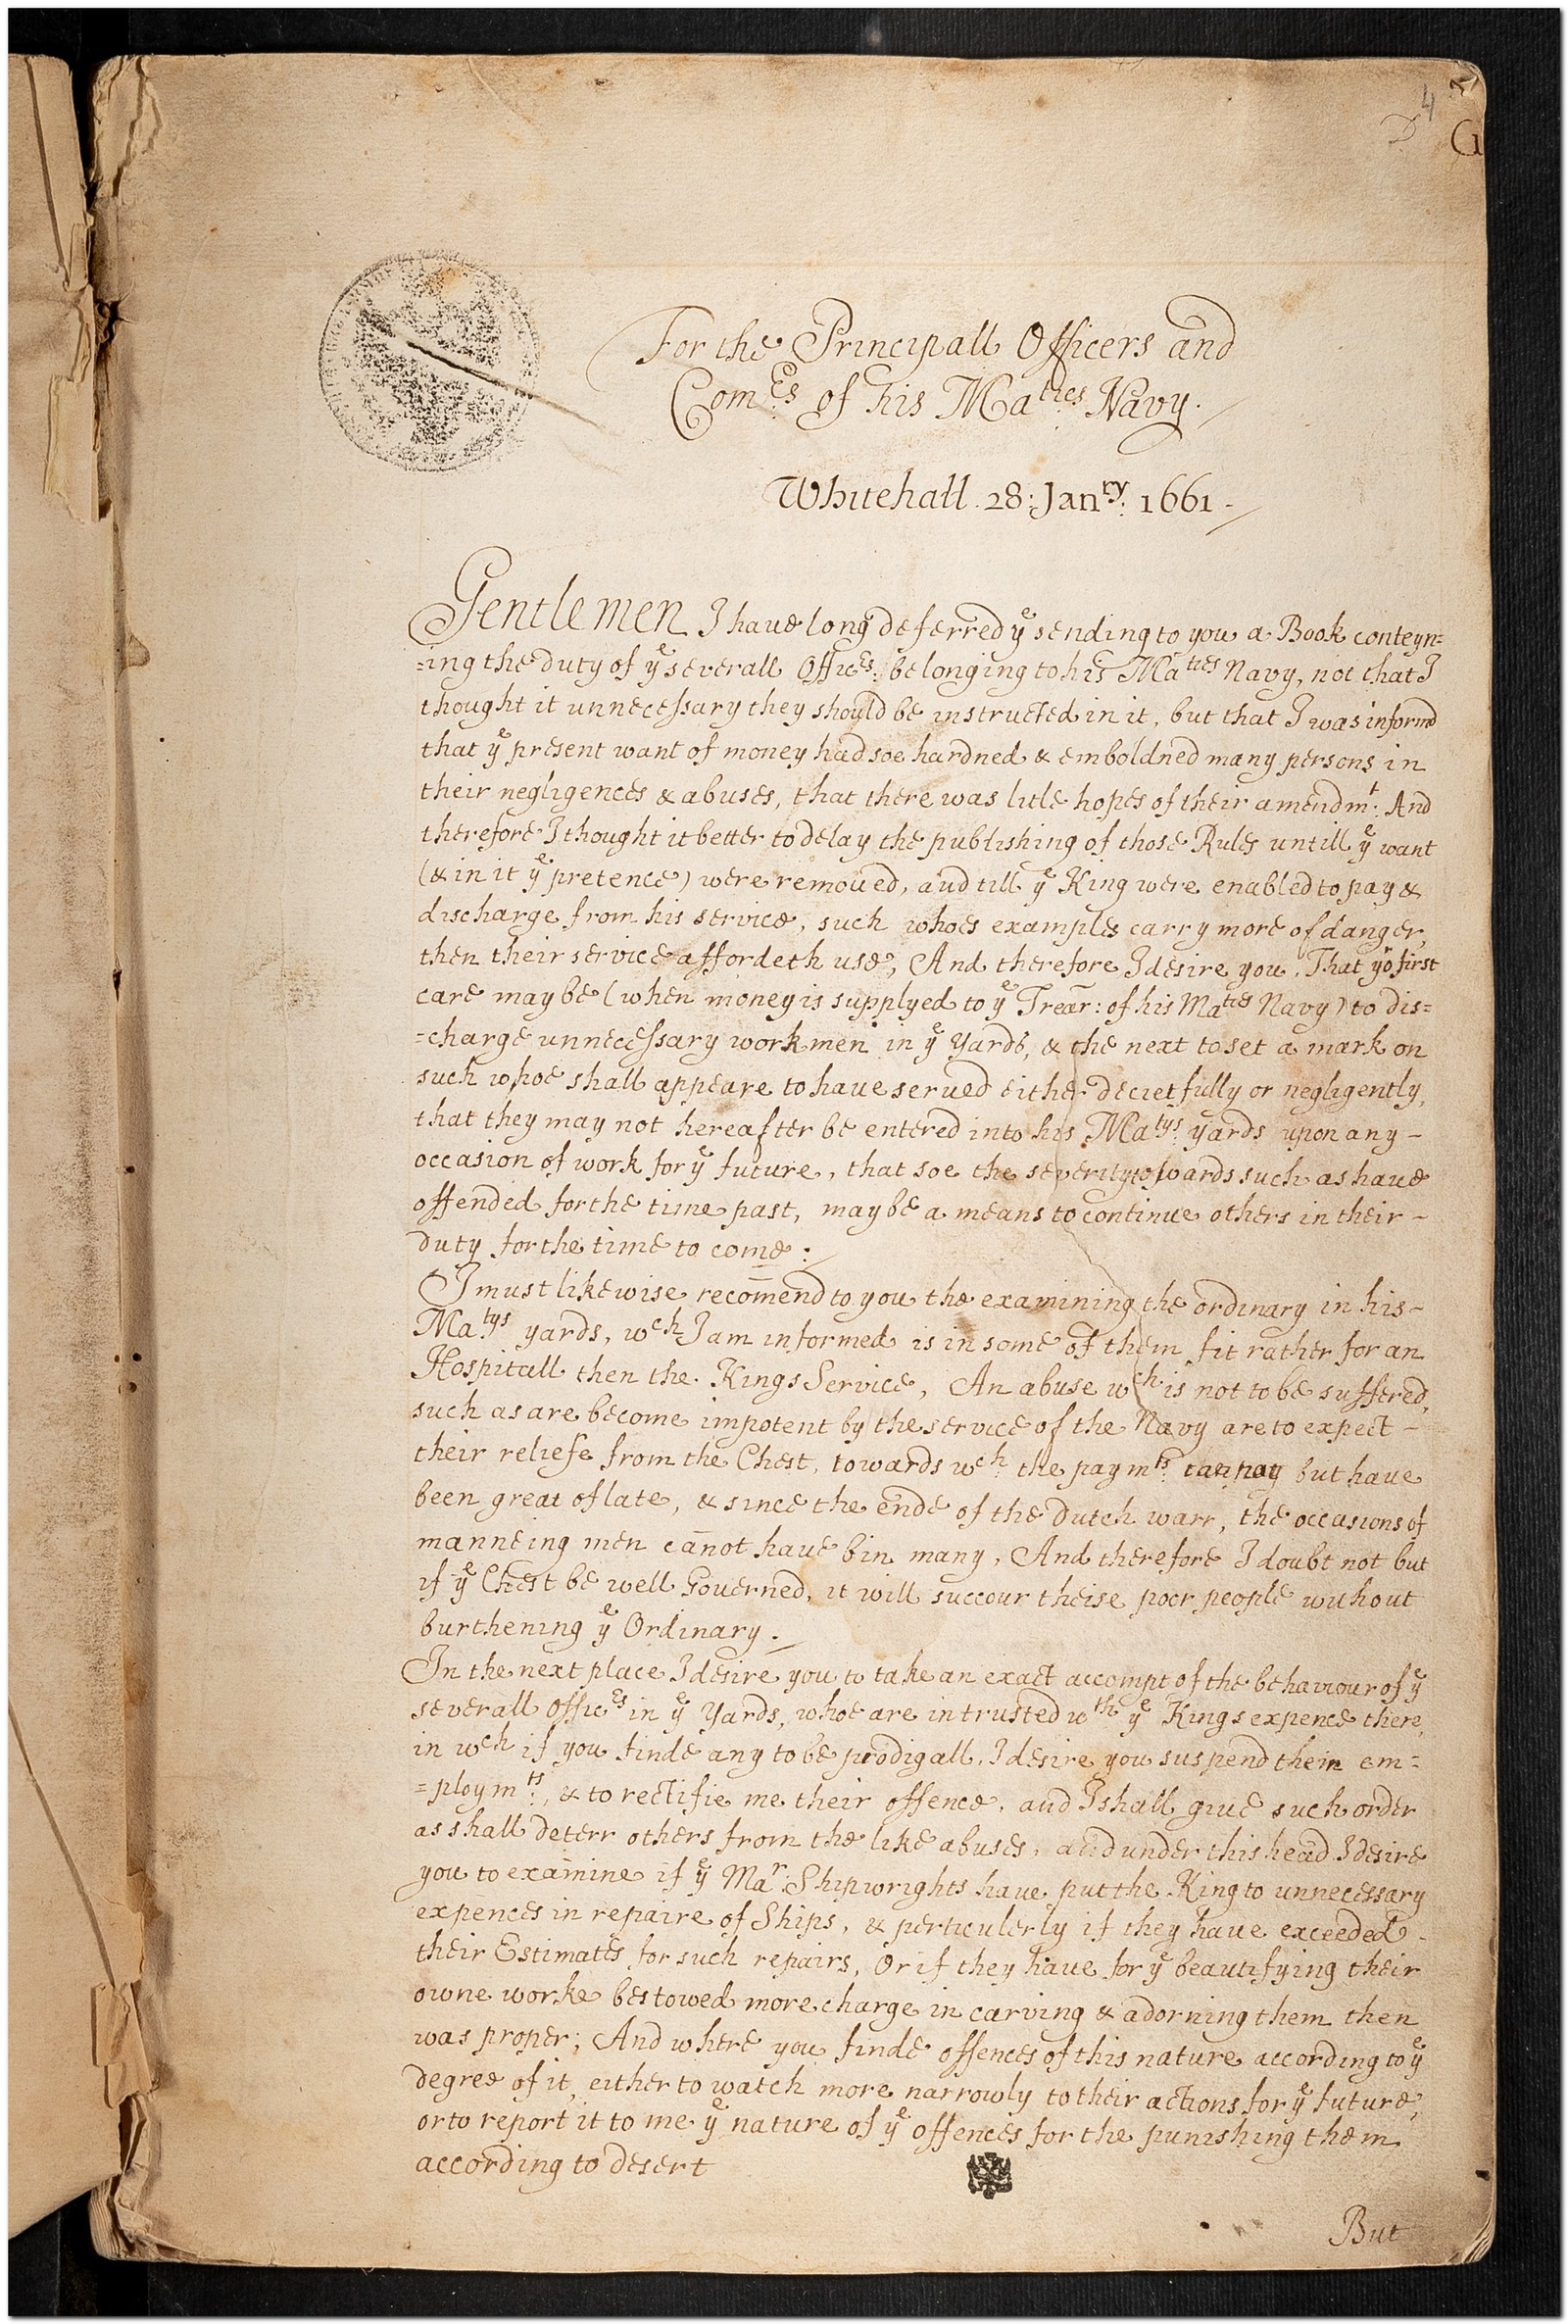 4
D G
For the Principall Officers and
Comrs of his Maties Navy.
Whitehall. 28: Janry: 1661
Gentlemen I haue long deferred ye sending to you a Book conteyn=
=ing the duty of ye severall Officrs: belonging to his Maties Navy, not that I
thought it unnecessary they should be instructed in it, but that I was informd
that ye present want of money had soe hardned & emboldned many persons in
their negligences & abuses, that there was litle hopes of their amendmt: And
therefore I thought it better to delay the publishing of those Rules untill ye want
(& in it ye pretence) were remoued, and till ye King were enabled to pay &
discharge from his service, such whoes examples carry more of danger,
then their service affordeth use; And therefore I desire you, That yor first
care may be (when money is supplyed to ye Trear: of his Maties Navy) to dis=
=charge unnecessary workmen in ye Yards, & the next to set a mark on
such whoe shall appeare to have serued either deceitfully or negligently,
that they may not hereafter be entered into his Matys yards upon any -
occasion of work for ye future, that soe the severity towards such as haue
offended for the time past, may be a means to continue others in their -
duty for the time to come:
I must likewise recom̄end to you the examining the ordinary in his -
Matys yards, wch I am informed is in some of them fit rather for an
Hospitall then the Kings Service, An abuse wch is not to be suffered,
such as are become impotent by the service of the Navy are to expect -
their reliefe from the Chest, towards wch: the paymts: but haue
been great of late, & since the ende of the Dutch warr, the occasions of
manneing men can̄ot haue bin many, And therefore I doubt not but
if ye Chest be well Gouerned, it will succour theise poor people without
burthening ye Ordinary.
In the next place I desire you to take an exact accompt of the behauiour of ye
severall Officrs in ye Yards, whoe are intrusted wth ye Kings expence there,
in wch if you finde any to be prodigall, I desire you suspend their em=
=ploymts:, & to rectifie me their offence, and I shall giue such order
as shall deterr others from the like abuses, and under this head I desire
you to exam̄ine if ye Mar: Shipwrights haue put the King to unnecessary
expences in repaire of Ships, & perticulerly if they haue exceeded -
their Estimates for such repairs, Or if they haue for ye beautifying their
owne worke bestowed more charge in carving & adorning them then
was proper; And where you finde offences of this nature according to ye
degree of it, either to watch more narrowly to their actions for ye future,
or to report it to me ye nature of ye offences for the punishing them
according to desert
But